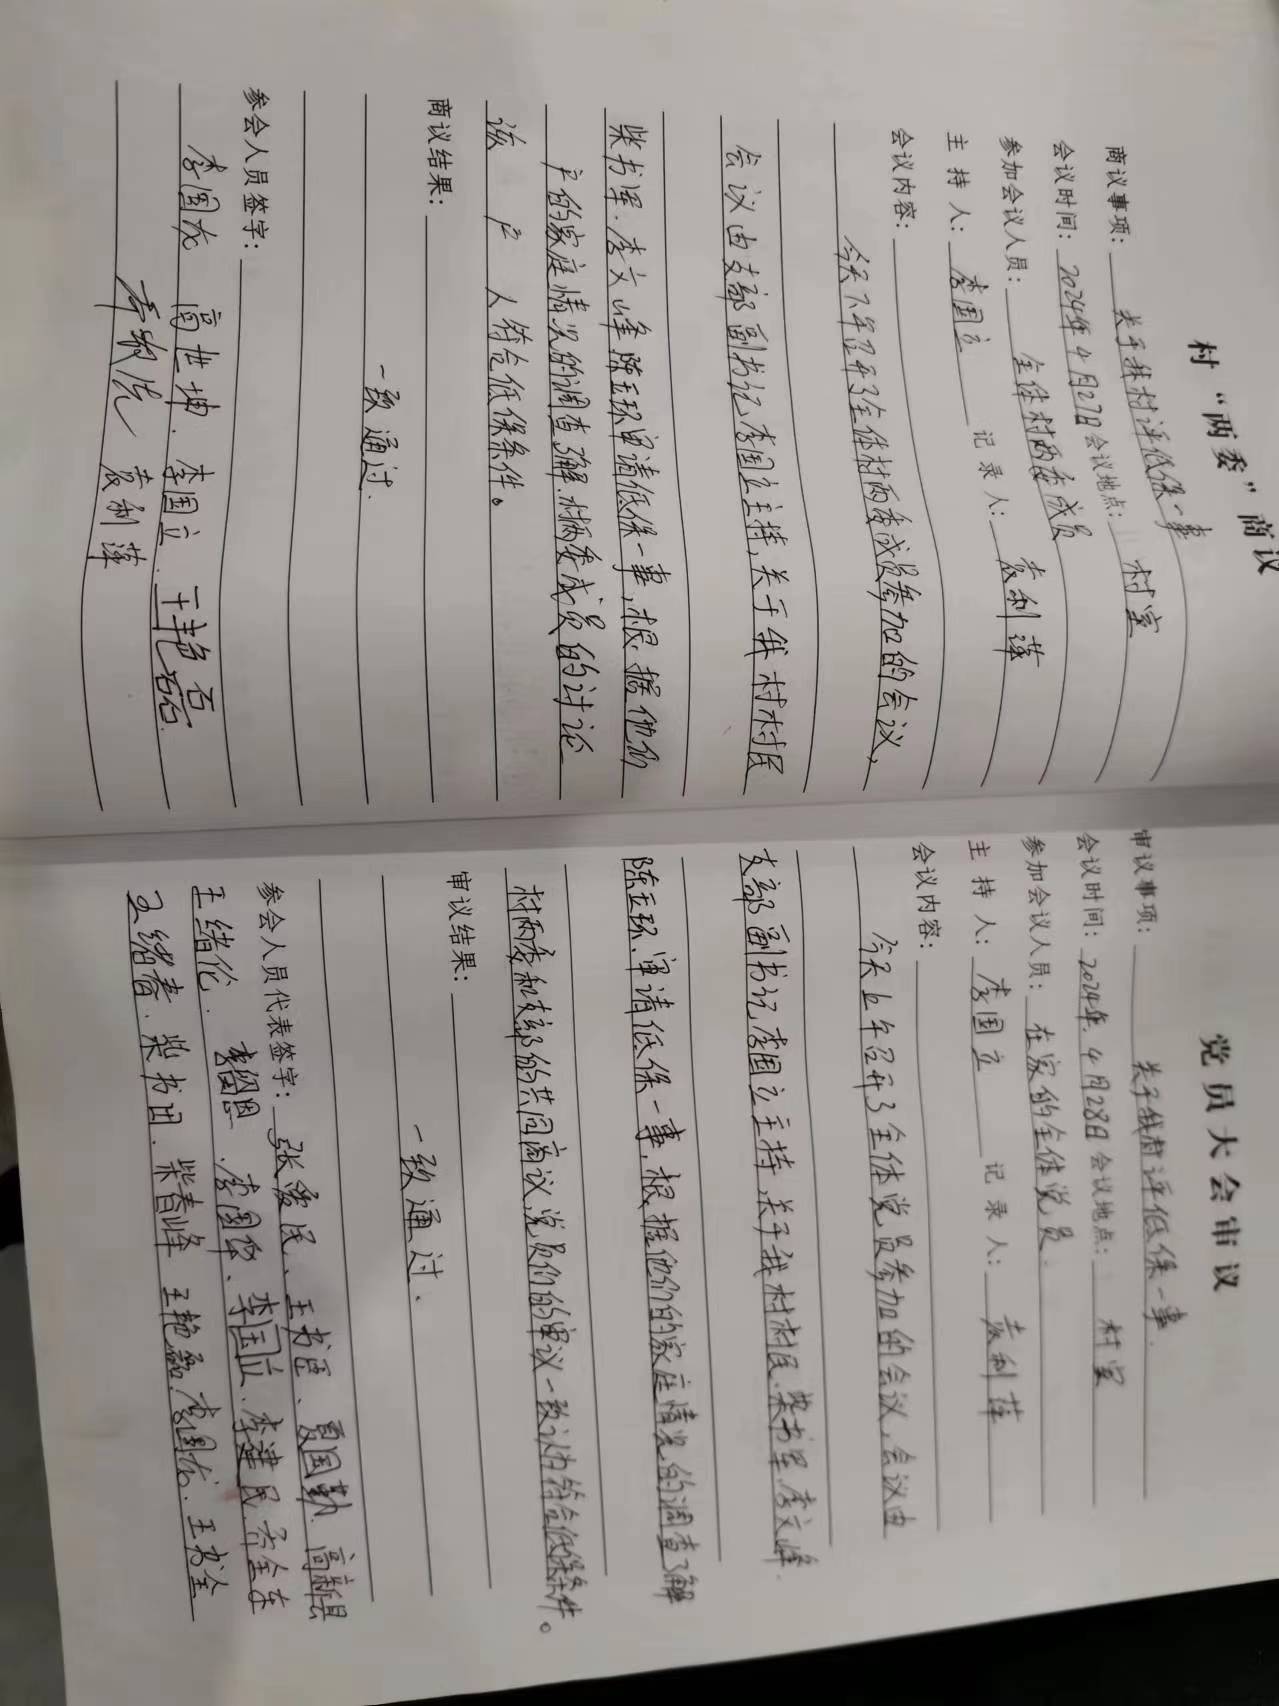 村“两委”商议
商议事项：关于我村评低保一事
会议时间：2024年4月27日会议地点：村室
参加会议人员：全体村两委成员
主持人：李国立 记录人：袁利萍
会议内容：
今天下午召开了全体村两委成员参加的会议，
会议由支部副书记李国立主持，关于我村村民
柴书军．李文峰．陈亚环审请低保一事，根据他们
户的家庭情况的调查了解．村两委成员的讨论
该户人符合低保条件。
商议结果：
一致通过．
参会人员签字：
李国龙 高世坤．李国立．王艳磊．
袁利萍
党员大会审议
审议事项：关于我村评低保一事．
会议时间：2024年．4月28日会议地点：村室
参加会议人员：在家的全体党员．
主持人：李国立 记录人：袁利萍
会议内容：
今天上午召开了全体党员参加的会议，会议由
支部副书记李国立主持．关于我村村民．柴书军．李文峰．
陈亚环．审请低保一事，根据他们的家庭情况的调查了解
村两委和支部的共同商议，党员们的审议一致认为符合低保条件。
审议结果：
一致通过．
参会人员代表签字：张爱民、王书臣、夏国勤．
王绪伦．李国立．李建民．
王绪春．柴书田．柴春峰 王艳磊．李国龙．王书全